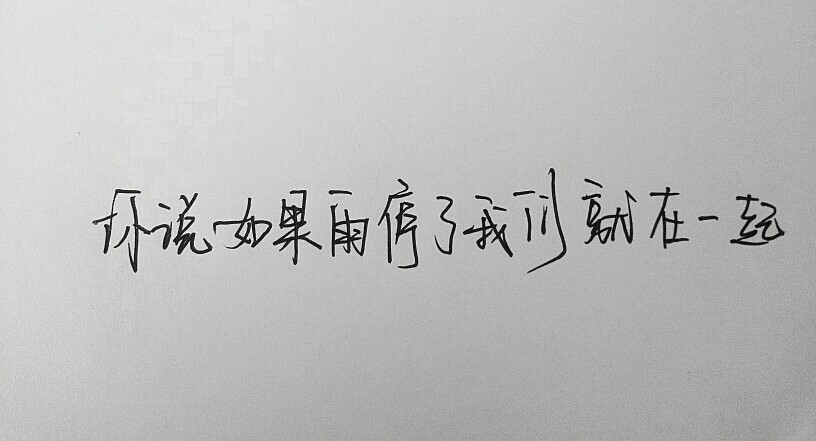 你说如果雨停了我们就在一起